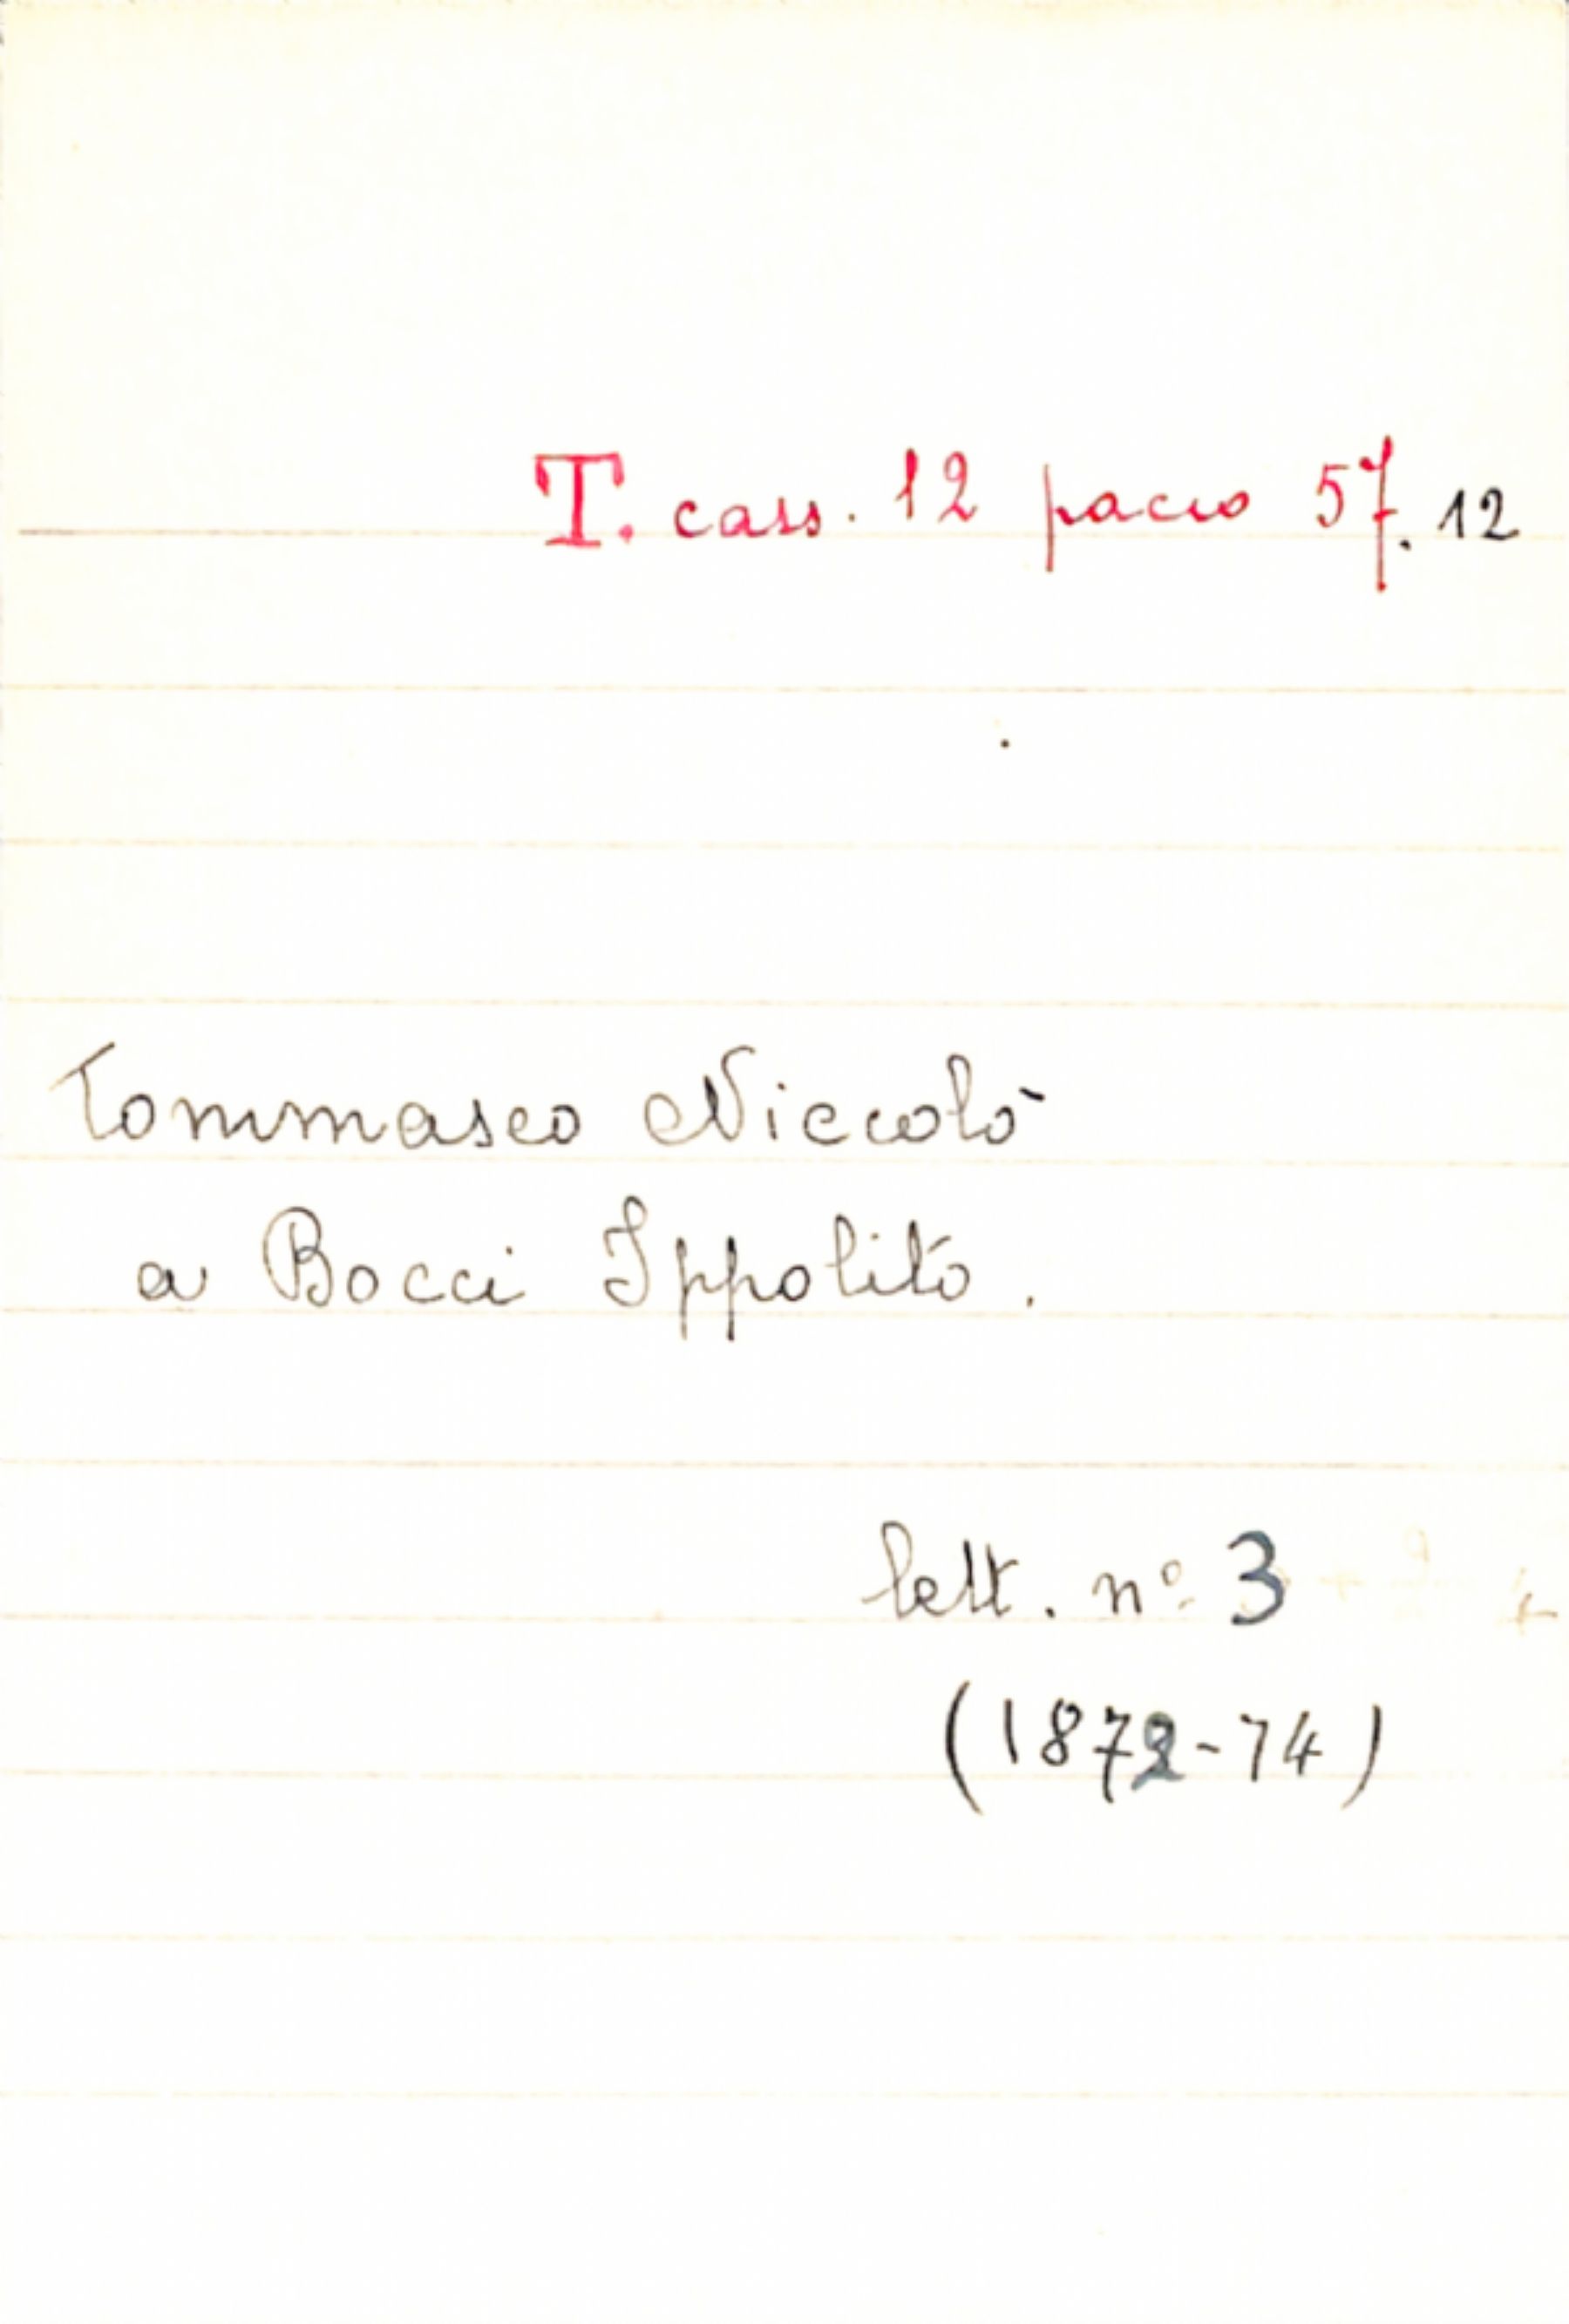 T. cass. 12 pacco 57.12
Tommaseo Niccolò
a Bocci Ippolito.
lett. nº 3
(1872-74)